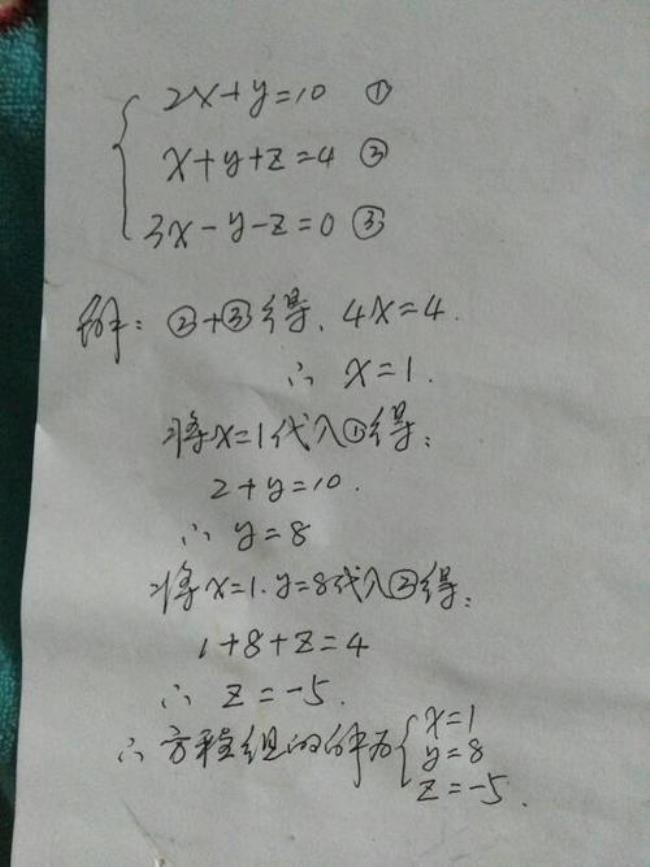 2x+y=10 ①
x+y+z=4 ②
3x-y-z=0 ③
解：②+③得，4x=4.
∴ x=1.
将x=1代入①得：
2+y=10.
∴ y=8
将x=1.y=8代入②得：
1+8+z=4
∴ z=-5.
∴方程组的解为{x=1
y=8
z=-5.